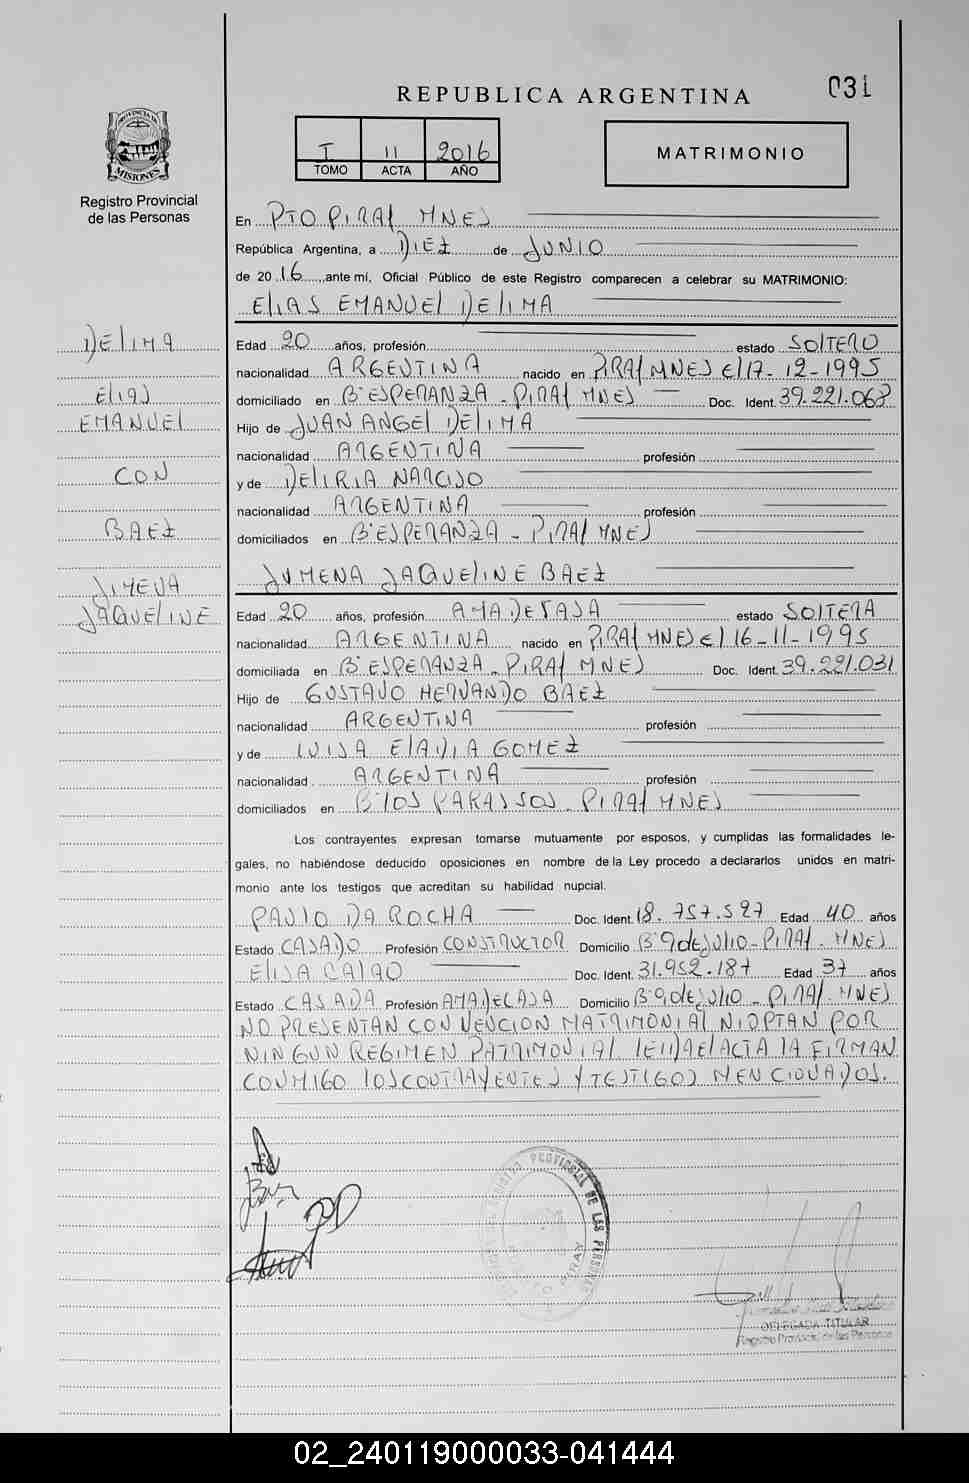 031
REPUBLICA ARGENTINA
PROVINCIA DE
MISIONES
Registro Provincial
de las Personas
I 11 2016
TOMO ACTA AÑO
MATRIMONIO
En PTO PIRAY MNES
República Argentina, a DIEZ de JUNIO
de 20 16, ante mí, Oficial Público de este Registro comparecen a celebrar su MATRIMONIO:
ELIAS EMANUEL DELIMA
DELIMA
ELIAS
EMANUEL
CON
BAEZ
JIMENA
JAQUELINE
Edad 20 años, profesión estado SOLTERO
nacionalidad ARGENTINA nacido en PIRAY MNES EL 17-12-1995
domiciliado en Bº ESPERANZA - PIRAY MNES Doc. Ident. 39.221.063
Hijo de JUAN ANGEL DELIMA
nacionalidad ARGENTINA profesión
y de DELIRIA NARCISO
nacionalidad ARGENTINA profesión
domiciliados en Bº ESPERANZA - PIRAY MNES
JUMENA JAQUELINE BAEZ
Edad 20 años, profesión AMA DE CASA estado SOLTERA
nacionalidad ARGENTINA nacido en PIRAY MNES EL 16-11-1995
domiciliada en Bº ESPERANZA - PIRAY MNES Doc. Ident. 39.221.031
Hijo de GUSTAVO HERNANDO BAEZ
nacionalidad ARGENTINA profesión
y de LUISA ELADIA GOMEZ
nacionalidad ARGENTINA profesión
domiciliados en Bº LOS PARAISOS - PIRAY MNES
Los contrayentes expresan tomarse mutuamente por esposos, y cumplidas las formalidades le-
gales, no habiéndose deducido oposiciones en nombre de la Ley procedo a declararlos unidos en matri-
monio ante los testigos que acreditan su habilidad nupcial.
PAULO DA ROCHA Doc. Ident. 18.757.527 Edad 40 años
Estado CASADO Profesión CONSTRUCTOR Domicilio Bº 9 de JULIO - PIRAY - MNES
ELISA Doc. Ident. 31.952.187 Edad 37 años
Estado CASADA Profesión AMA DE CASA Domicilio Bº 9 de JULIO - PIRAY. MNES
NO PRESENTAN CONVENCION MATRIMONIAL NI OPTAN POR
NINGUN REGIMEN PATRIMONIAL LEIDA EL ACTA LA FIRMAN
CONMIGO LOS CONTRAYENTES Y TESTIGOS MENCIONADOS.
REGISTRO PROVINCIAL DE LAS PERSONAS
PIRAY
DELEGADA TITULAR
Registro Provincial de las Personas
02_240119000033-041444